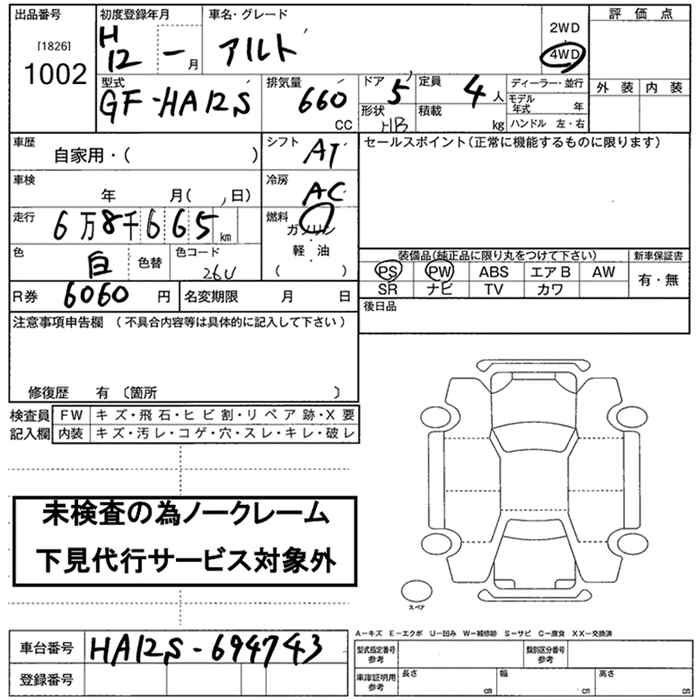 出品番号 [1826] 1002
初度登録年月 H12-1月
車名・グレード アルト
2WD
4WD
評価点
外装 内装
型式 GF-HA12S
排気量 660 CC
ドア 5
形状 HB
定員 4人
積載 kg
ディーラー・並行
モデル年式 年
ハンドル 左・右
車歴 自家用・( )
シフト AT
セールスポイント(正常に機能するものに限ります)
車検 年 月( , 日)
冷房 AC
走行 6万8千665km
燃料 ガソリン・軽油 ( )
色 白 色替 色コード 26U
装備品(純正品に限り丸をつけて下さい)
新車保証書
PS PW ABS エアB AW
有・無
SR ナビ TV カワ
R券 6060円 名変期限 月 日
後日品
注意事項申告欄 (不具合内容等は具体的に記入して下さい)
修復歴 有 〔箇所 〕
検査員記入欄
FW キズ・飛石・ヒビ割・リペア跡・X要
内装 キズ・汚レ・コゲ・穴・スレ・キレ・破レ
未検査の為ノークレーム
下見代行サービス対象外
スペア
A-キズ E-エクボ U-凹み W-補修跡 S-サビ C-腐食 XX-交換済
車台番号 HA12S-694743
型式指定番号 参考
類別区分番号 参考
登録番号
車庫証明用 参考
長さ cm 幅 cm 高さ cm